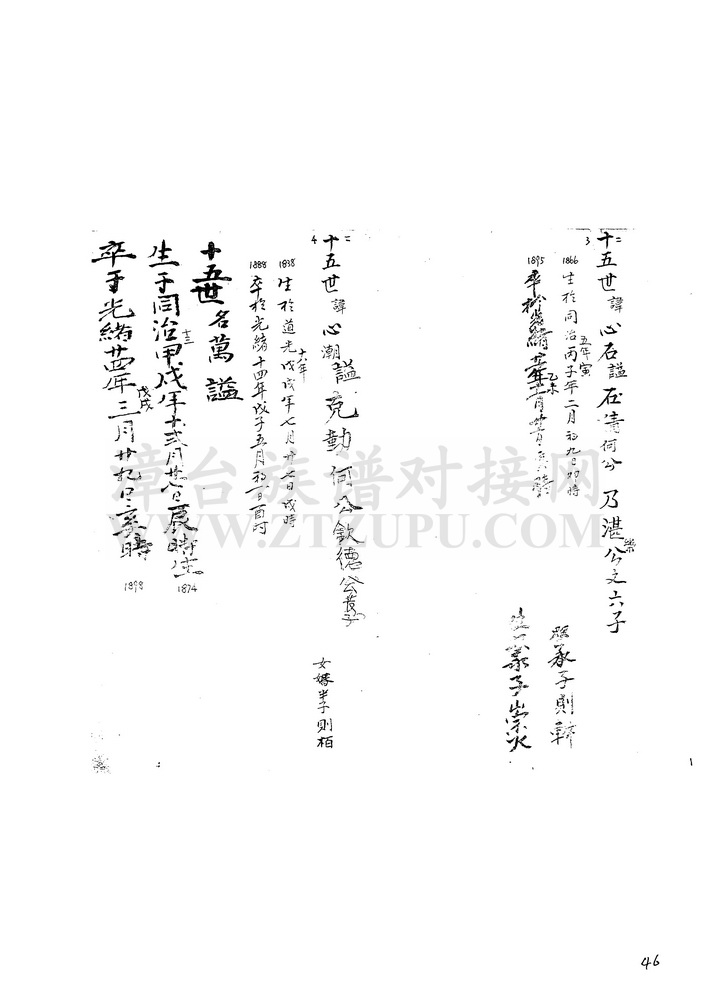 3 二
十五世諱心石謚在清何公乃湛樂公之六子
1866
生於同治五年寅丙子年二月初九日卯時
1895
卒於光緒乙未年
承子則
義子崇火
4 二
十五世諱心潮謚克勤何公欽德公長子
1838
生於道光十八年戊戌年七月廿七日戌時
1888
卒於光緒十四年戊子五月初一日酉时
女婿半子則栢
十五世名萬謚
生于同治十三甲戌年十弍月廿八日辰時生
1874
卒于光緒廿四年戊戌三月廿九日亥時
1898
漳台族谱对接网
WWW.ZTZUPU.COM
46